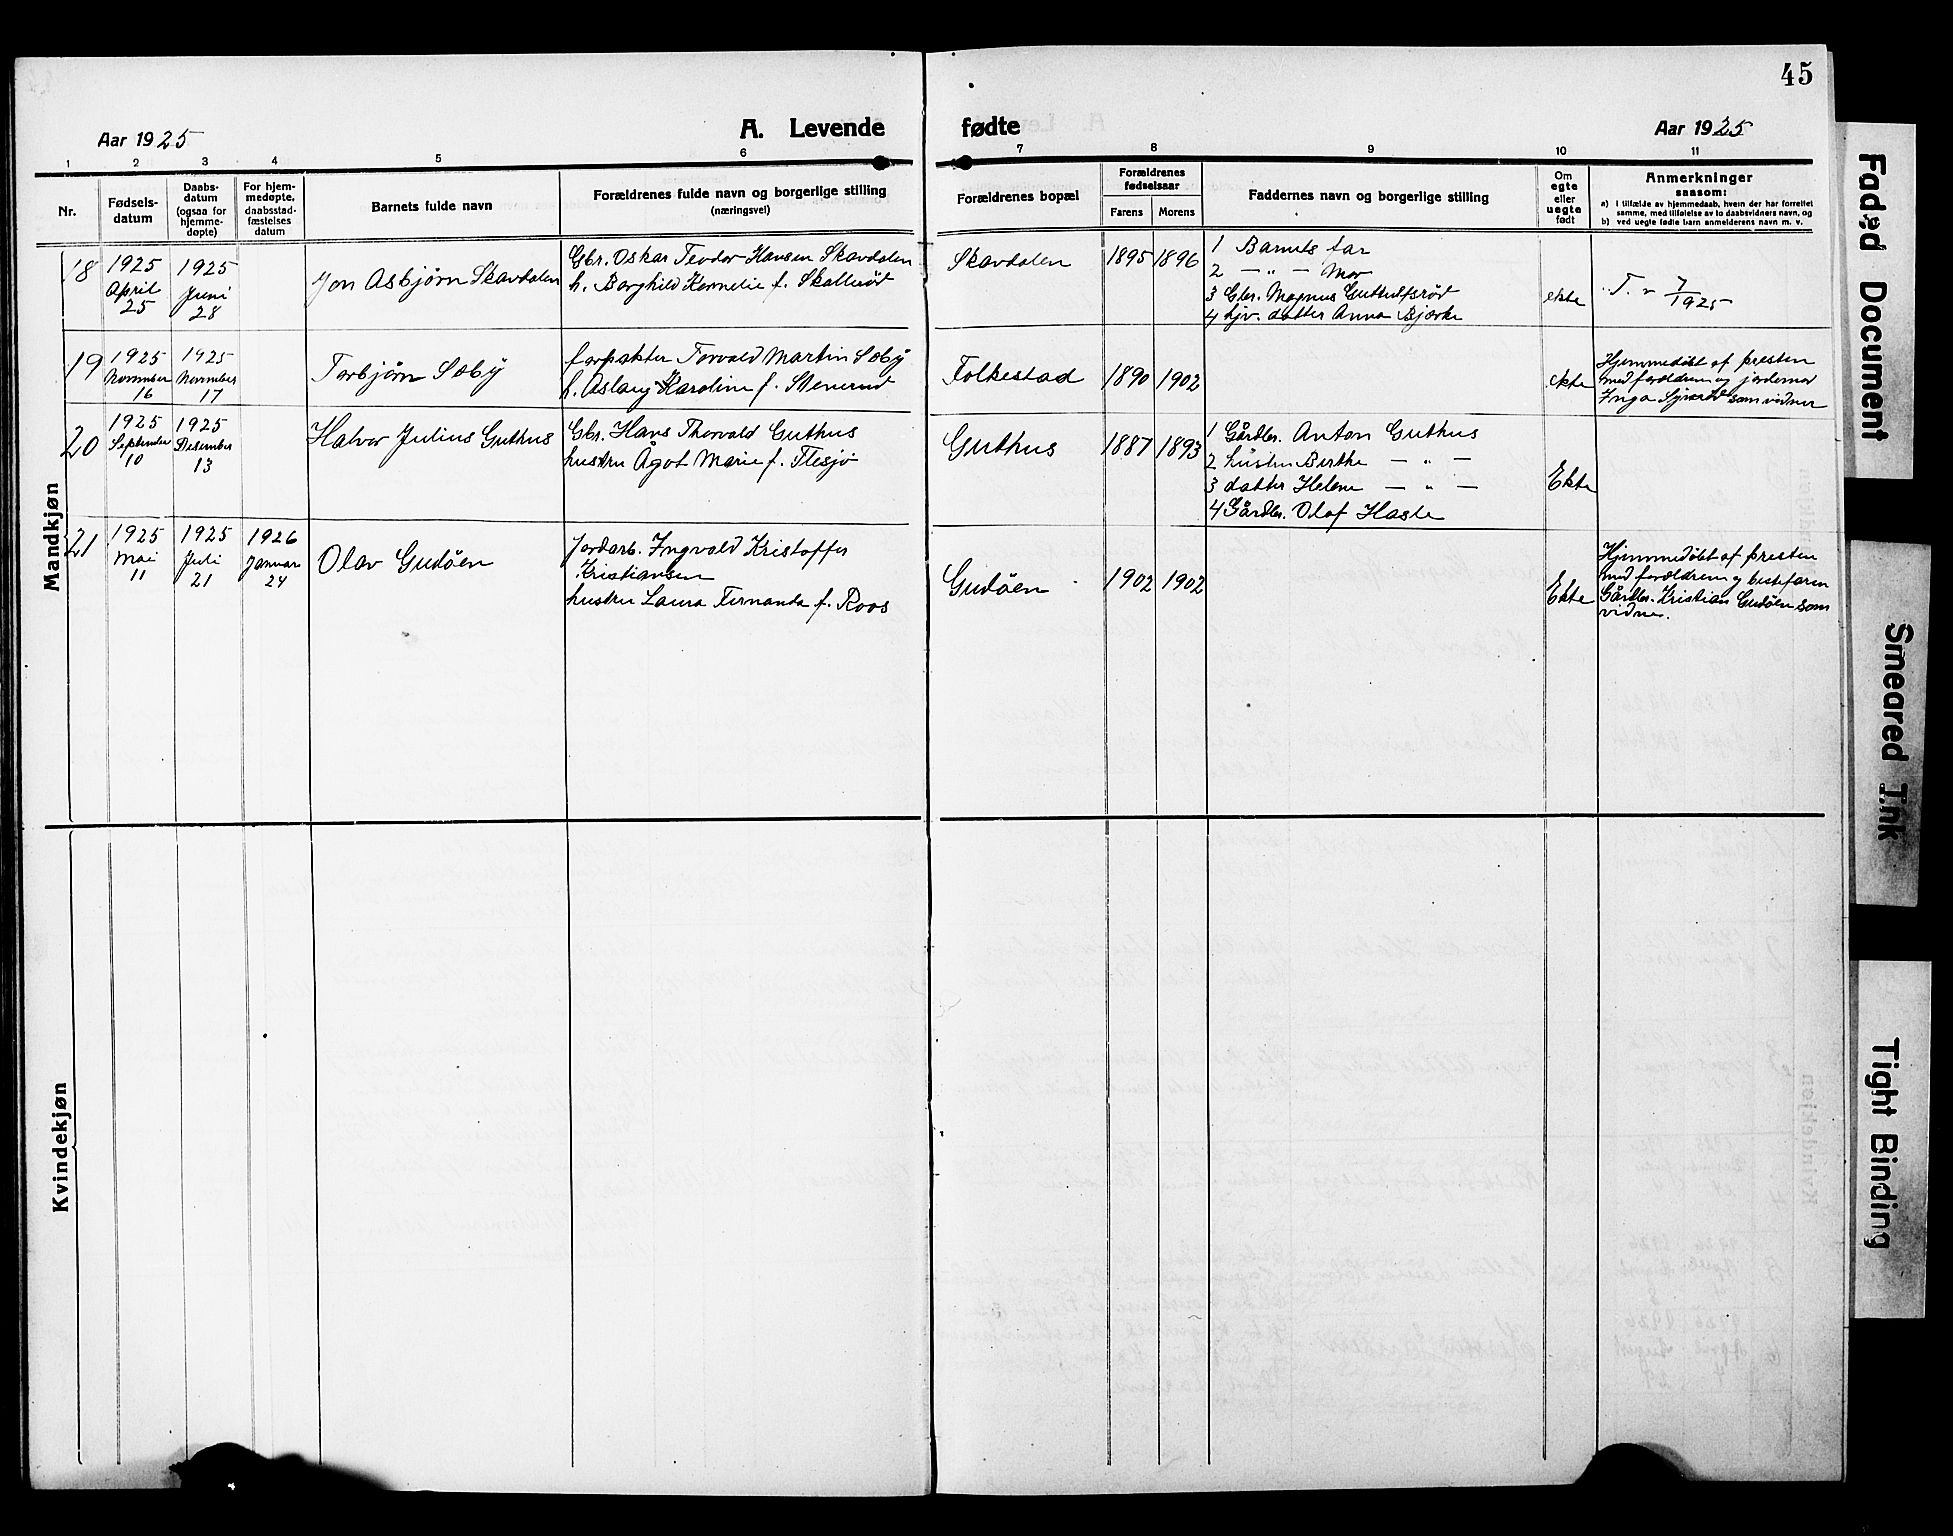 45
Aar 1925
A. Levende
fødte
Aar 1925
1 2 3 4 5 6 7 8 9 10 11
Nr.
Fødsels-
datum
Daabs-
datum
(ogsaa for
hjemme-
døpte)
For hjem-
medøpte,
daabsstad-
fæstelses
datum
Barnets fulde navn
Forældrenes fulde navn og borgerlige stilling
(næringsvei)
Forældrenes bopæl
Forældrenes
fødselsaar
Farens
Morens
Faddernes navn og borgerlige stilling
Om
egte
eller
uegte
født
Anmerkninger
saasom:
a) i tilfælde av hjemmedaab, hvem der har forrettet
samme, med tilføielse av to daabsvidners navn, og
b) ved uegte fødte barn anmelderens navn m. v.
Mandkjøn
18
1925
April
25
1925
Juni
28
Jon Asbjørn Skavdalen
Gbr. Oskar Teodor Hansen Skavdalen
h. Borghild Kornelie f. Skallerød
Skavdalen
1895
1896
1 Barnets far
2 — „ — Mor
3 Gbr. Magnus Guttulfsrød
4 hjv. datter Anna Bjørke
ekte
T. 7/1925
19
1925
November
16
1925
November
17
Torbjørn Søby
forpakter Torvald Martin Søby
h. Aslaug Karoline f. Stenerud
Folkestad
1890
1902
ekte
Hjemmedøbt af presten
med forældrene og jordemor
Inga som vidner
20
1925
September
10
1925
Desember
13
Halvor Julius Guthus
Gbr. Hans Thorvald Guthus
hustru Ågot Marie f. Flesjø
Guthus
1887
1893
1 Gårdbr. Anton Guthus
2 hustru Berthe — „ —
3 datter Helene — „ —
4 Gårdbr. Olaf Hasle
Ekte
21
1925
Mai
11
1925
Juli
21
1926
Januar
24
Olav Gudøen
Jordarb. Ingvald Kristoffer
Kristiansen
hustru Laura Fernanda f. Roos
Gudøen
1902
1902
Ekte
Hjemmedøbt af presten
med forældrene og bestefaren
Gårdbr. Kristian Gudøen som
vidner.
Kvindekjøn
Faded Document
Smeared Ink
Tight Binding